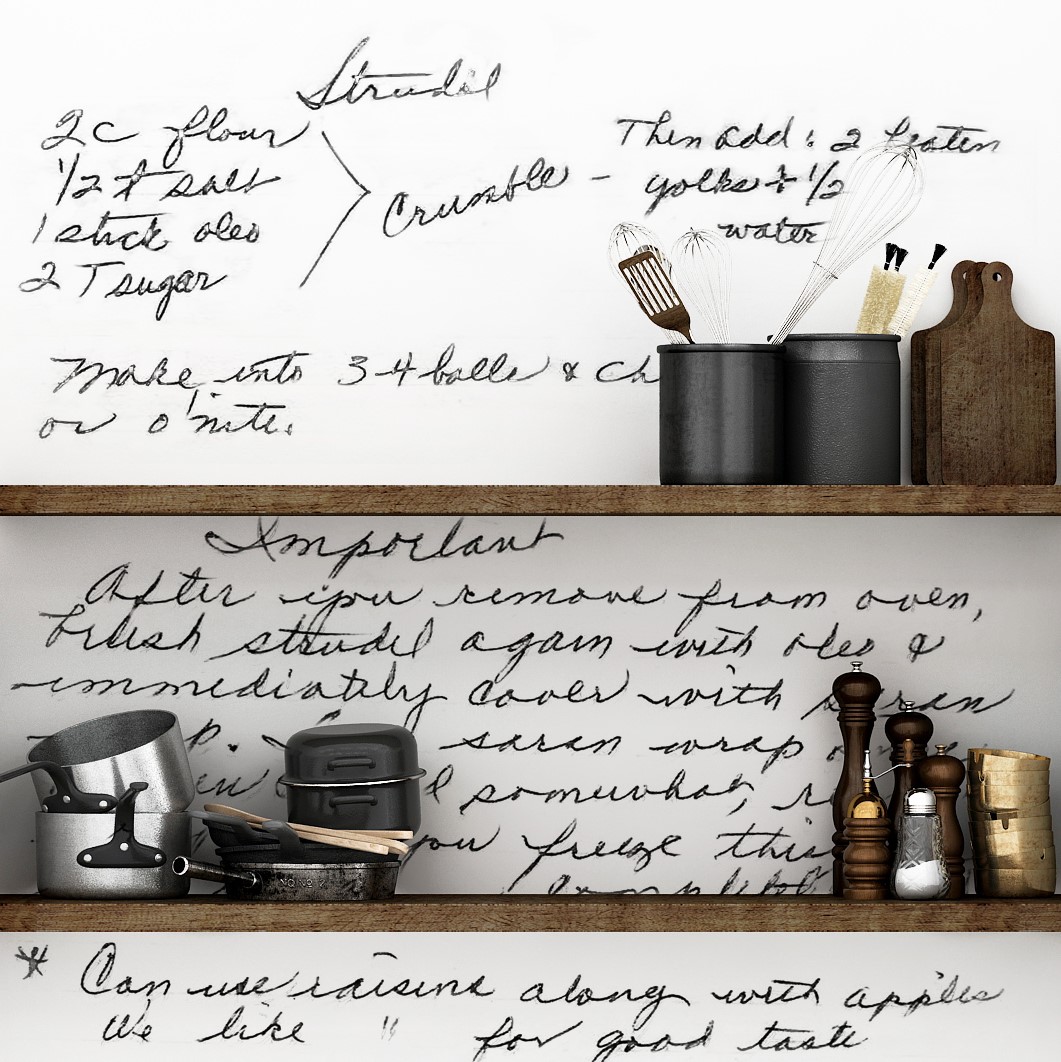 Strudel
2 c flour
1/2 t salt
1 stick oleo
2 T sugar
Crumble –
Then add: 2 beaten
yolks + 1/2
water
Make into 3-4 balls & ch
or o'nite.
Important
After you remove from oven,
brush strudel again with oleo &
immediately cover with saran
p. saran wrap
somewhat,
you freeze this
* Can use raisins along with apples
We like " for good taste